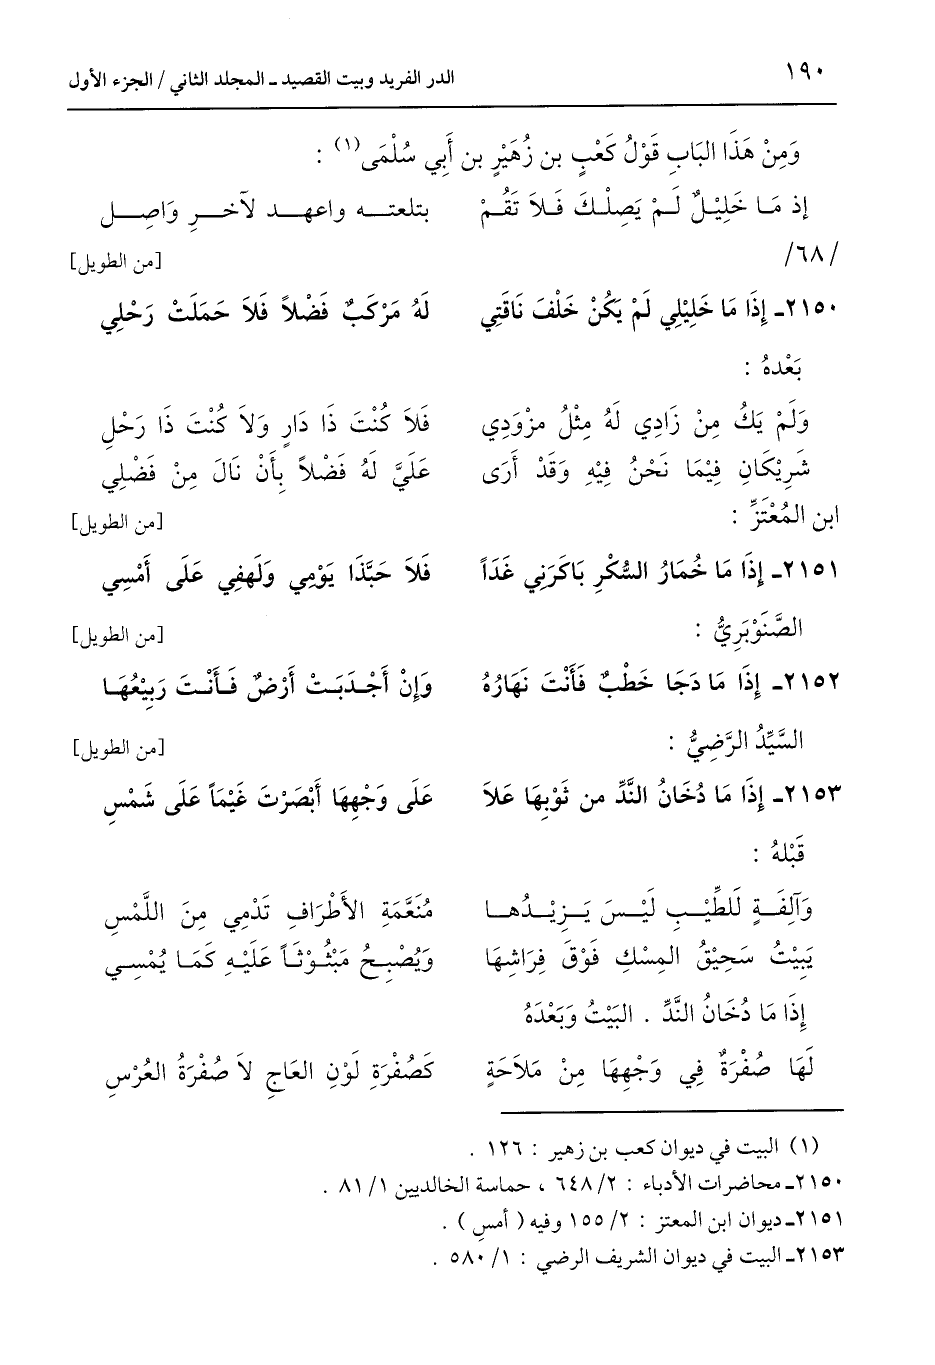 ١٩٠ الدر الفريد وبيت القصيد ـ المجلد الثاني / الجزء الأول
وَمِنْ هَذَا البَابِ قَوْلُ كَعْبِ بن زُهَيْرِ بن أَبِي سُلْمَى(١) :
إذ مَا خَلِيْلٌ لَمْ يَصِلْكَ فَلاَ تَقُمْ بتلعته واعهد لآخرِ وَاصِل
/٦٨/ [من الطويل]
٢١٥٠ـ إِذَا مَا خَلِيْلِي لَمْ يَكُنْ خَلْفَ نَاقَتِي لَهُ مَرْكَبٌ فَضْلاً فَلاَ حَمَلَتْ رَحْلِي
بَعْدهُ :
وَلَمْ يَكُ مِنْ زَادِي لَهُ مِثْلُ مزْوَدِي فَلاَ كُنْتَ ذَا دَارٍ وَلاَ كُنْتَ ذَا رَحْلِ
شَرِيْكَانِ فِيْمَا نَحْنُ فِيْهِ وَقَدْ أَرَى عَلَيَّ لَهُ فَضْلاً بِأَنْ نَالَ مِنْ فَضْلِي
ابن المُعْتَزِّ : [من الطويل]
٢١٥١ـ إِذَا مَا خُمَارُ السُّكْرِ بَاكَرَنِي غَدَاً فَلاَ حَبَّذَا يَوْمِي وَلَهفِي عَلَى أَمْسِي
الصَّنَوْبَرِيُّ : [من الطويل]
٢١٥٢ـ إِذَا مَا دَجَا خَطْبٌ فَأَنْتَ نَهَارُهُ وَإِنْ أَجْدَبَتْ أَرْضٌ فَأَنْتَ رَبِيْعُهَا
السَّيِّدُ الرَّضِيُّ : [من الطويل]
٢١٥٣ـ إِذَا مَا دُخَانُ النَّدِّ من ثَوْبِهَا عَلاَ عَلَى وَجْهِهَا أَبْصَرْتَ غَيْمَاً عَلَى شَمْسِ
قَبْلهُ :
وَآلِفَةٍ لَلطِّيْبِ لَيْسَ يَزِيْدُهَا مُنَعَّمَةِ الأَطْرَافِ تَدْمِي مِنَ اللَّمْسِ
يَبِيْتُ سَحِيْقُ المِسْكِ فَوْقَ فِرَاشِهَا وَيُصْبِحُ مَبْثُوْثَاً عَلَيْهِ كَمَا يُمْسِي
إِذَا مَا دُخَانُ النَّدِّ . البَيْتُ وَبَعْدَهُ
لَهَا صُفْرَةٌ فِي وَجْهِهَا مِنْ مَلاَحَةٍ كَصُفْرَةِ لَوْنِ العَاجِ لاَ صُفْرَةُ العُرْسِ
(١) البيت في ديوان كعب بن زهير : ١٢٦ .
٢١٥٠ـ محاضرات الأدباء : ٢/ ٦٤٨ ، حماسة الخالديين ١/ ٨١ .
٢١٥١ـ ديوان ابن المعتز : ٢/ ١٥٥ وفيه ( أمسِ ) .
٢١٥٣ـ البيت في ديوان الشريف الرضي : ١/ ٥٨٠ .